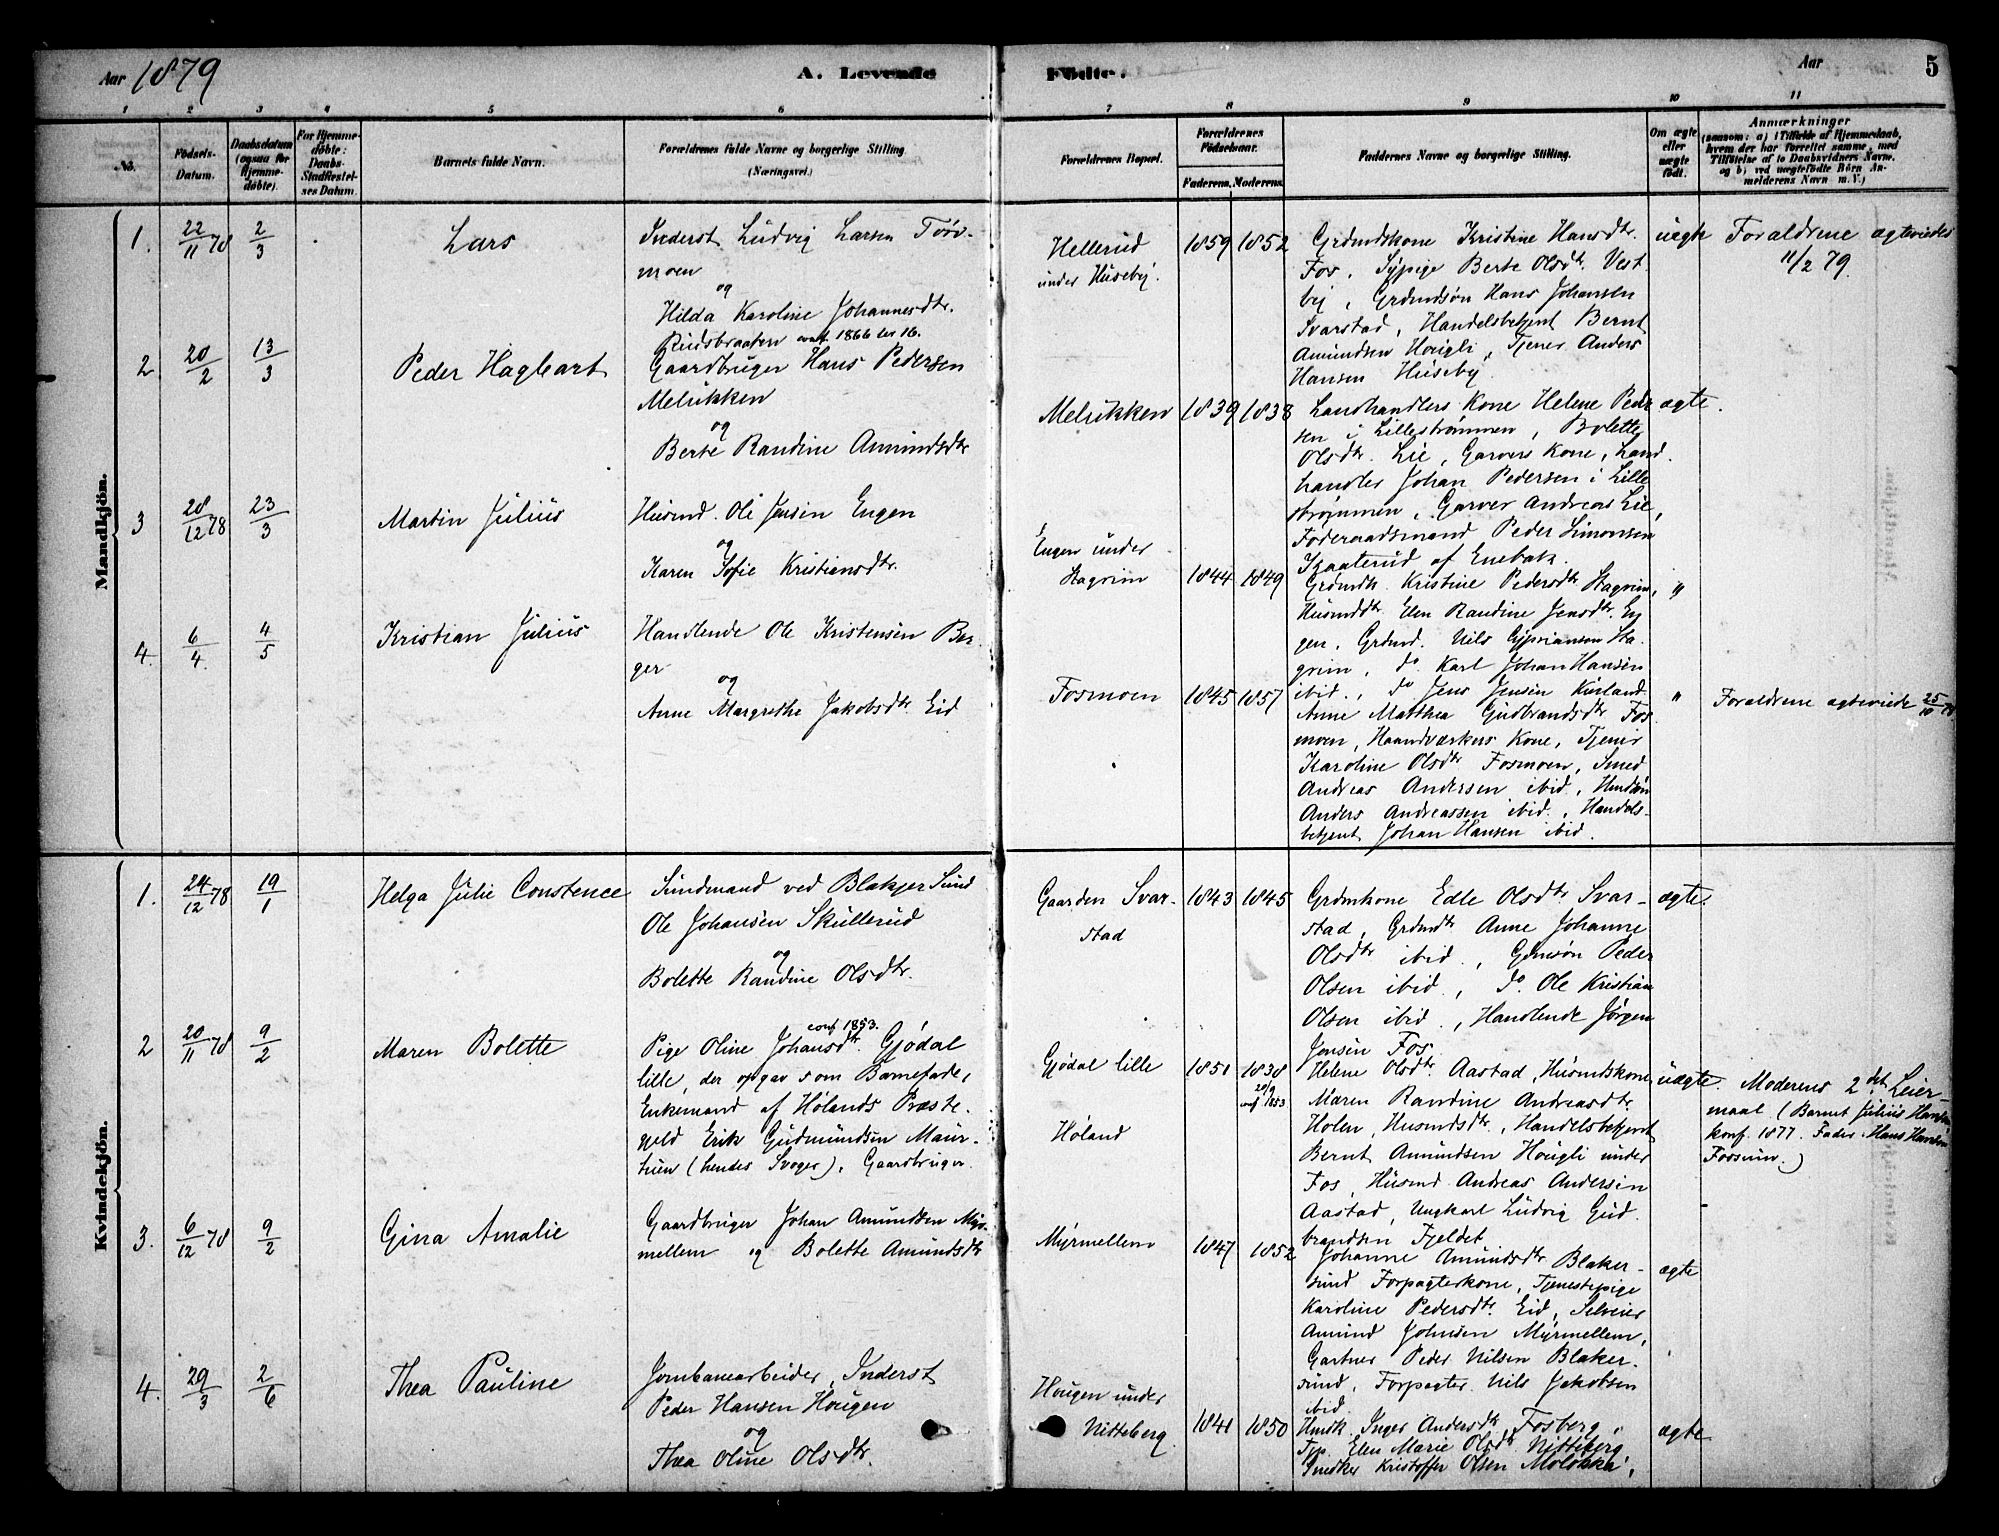 Aar 1879
A. Levende
Fødte.
Aar
5
1 2 3 4 5 6 7 8 9 10 11
No.
Fødsels-
Datum.
Daabsdatum
(ogsaa for
Hjemme-
døbte).
For Hjemme-
døbte:
Daabs-
Stadfæstel-
ses Datum.
Barnets fulde Navn.
Forældrenes fulde Navne og borgerlige Stilling.
(Næringsvei.)
Forældrenes Bopæl.
Forældrenes
Fødselsaar.
Faderens. Moderens.
Faddernes Navne og borgerlige Stilling.
Om ægte
eller
uægte
født.
Anmærkninger
(saasom: a) i Tilfælde af Hjemmedaab,
hvem der har forrettet samme, med
Tilføielse af to Daabsvidners Navne,
og b) ved uægtefødte Børn An-
melderens Navn m. V.)
Mandkjön.
1. 22/11 78 2/3
Lars
Inderst Ludvig Larsen Torv-
moen
og
Hilda Karoline Johannesdtr.
Rudsbraaten conf. 1866 16.
Hellerud
under Huseby.
1859 1852
Grdmdskone Kristine Hansdtr.
Fos, Sypige Berte Olsdtr. Vest
by, Grdmdsøn Hans Johansen
Svarstad, Handelsbetjent Bernt
Amundsen Hougli, Tjener Anders
Hansen Huseby.
uægte
Forældrene ægteviedes
11/2 79.
2 20/2 13/3
Peder Hagbart
Gaardbruger Hans Pedersen
Melnikken
og
Berte Randine Amundsdtr
Melnikken
1839 1838
Landhandlers Kone Helene Peder
sen i Lillestrømmen, Bolette
Olsdtr. Lie, Garvers Kone, Land
handler Johan Pedersen i Lille
strømmen, Garver Andreas Lie,
Føderaadsmand Peder Simonsen
Kaaterud af Enebak.
ægte.
3 28/12 78 23/3
Martin Julius
Husmd. Ole Jensen Engen
og
Karen Sofie Kristiansdtr.
Engen under
Hagrim
1844 1849
Grdmdk. Kristine Pedersdtr. Hagrim,
Husmddtr. Elen Randine Jensdtr. En
gen, Grdmd. Nils Cyprianson Ha
grim, do. Karl Johan Hansen
ibid., do Jens Jensen Kinland
"
4. 6/4. 4/5
Kristian Julius
Handlende Ole Kristensen Ber-
ger
og
Anne Margrethe Jakobsdtr. Eid
Fosmoen
1845 1857
Anne Matthea Gudbrandsdtr Fos
moen, Haandværkers Kone, Tjener
Karoline Olsdtr Fosmoen, Smed
Andreas Andersen ibid, Husdsøn
Anders Andreassen ibid., Handels-
betjent Johan Hansen ibid.
"
Forældrene ægteviede 25/10 78
Kvindekjön.
1. 24/12 78 19/1
Helga Julie Constence
Sundmand ved Blakjer Sund
Ole Johansen Skullerud
og
Bolette Randine Olsdtr.
Gaarden Svar-
stad
1843 1845
Grdmkone Edle Olsdtr Svar-
stad, Grdmdtr Anne Johanne
Olsdtr ibid., Gdmsøn Peder
Olsen ibid., do. Ole Kristian
Olsen ibid., Handlende Jørgen
Jensen Fos
ægte.
2 20/11 78 9/2
Maren Bolette
conf 1853.
Pige Oline Johansdtr. Gjödal
lille, der opgav som Barnefader,
Enkemand af Hølands Præste-
gjeld Erik Gudmundsen Maur-
tuen (hendes Svoger), Gaardbruger.
Gjødal lille
Høland
1851 1838
20/9
conf 1853
Helene Olsdtr. Aastad, Husmdskone,
Maren Randine Andreasdtr.
Holen, Husmdsdtr., Handelsbetjent
Bernt Amundsen Hougli under
Fos, Husmd Andreas Andersen
Aastad, Ungkarl Ludvig Gud
brandsen Fjeldet
uægte.
Moderens 2det Leier-
maal (Barnet Julius Hansen
konf. 1877. Fader: Hans Hansen
Fossum.)
3. 6/12 78 9/2
Gina Amalie
Gaardbruger Johan Amundsen Myr-
mellem og Bolette Amundsdtr
Myrmellem
1847 1852
Johanne Amundsdtr Blaker-
sund Forpagterkone, Tjenestepige
Karoline Pedersdtr. Eid, Selveier
Amund Johnsen Myrmellem,
Gartner Peder Nilsen Blaker-
sund, Forpagter Nils Jakobsen
ibid.
ægte
4. 29/3 2/6
Thea Pauline
Jernbanearbeider, Inderst
Peder Hansen Hougen
og
Thea Oline Olsdtr.
Hougen under
Nitteberg
1841 1850
Husmk. Inger Andersdtr. Fosberg,
Tjp. Elen Marie Olsdtr. Nitteberg
Snedker Kristoffer Olsen Molokka,
ægte